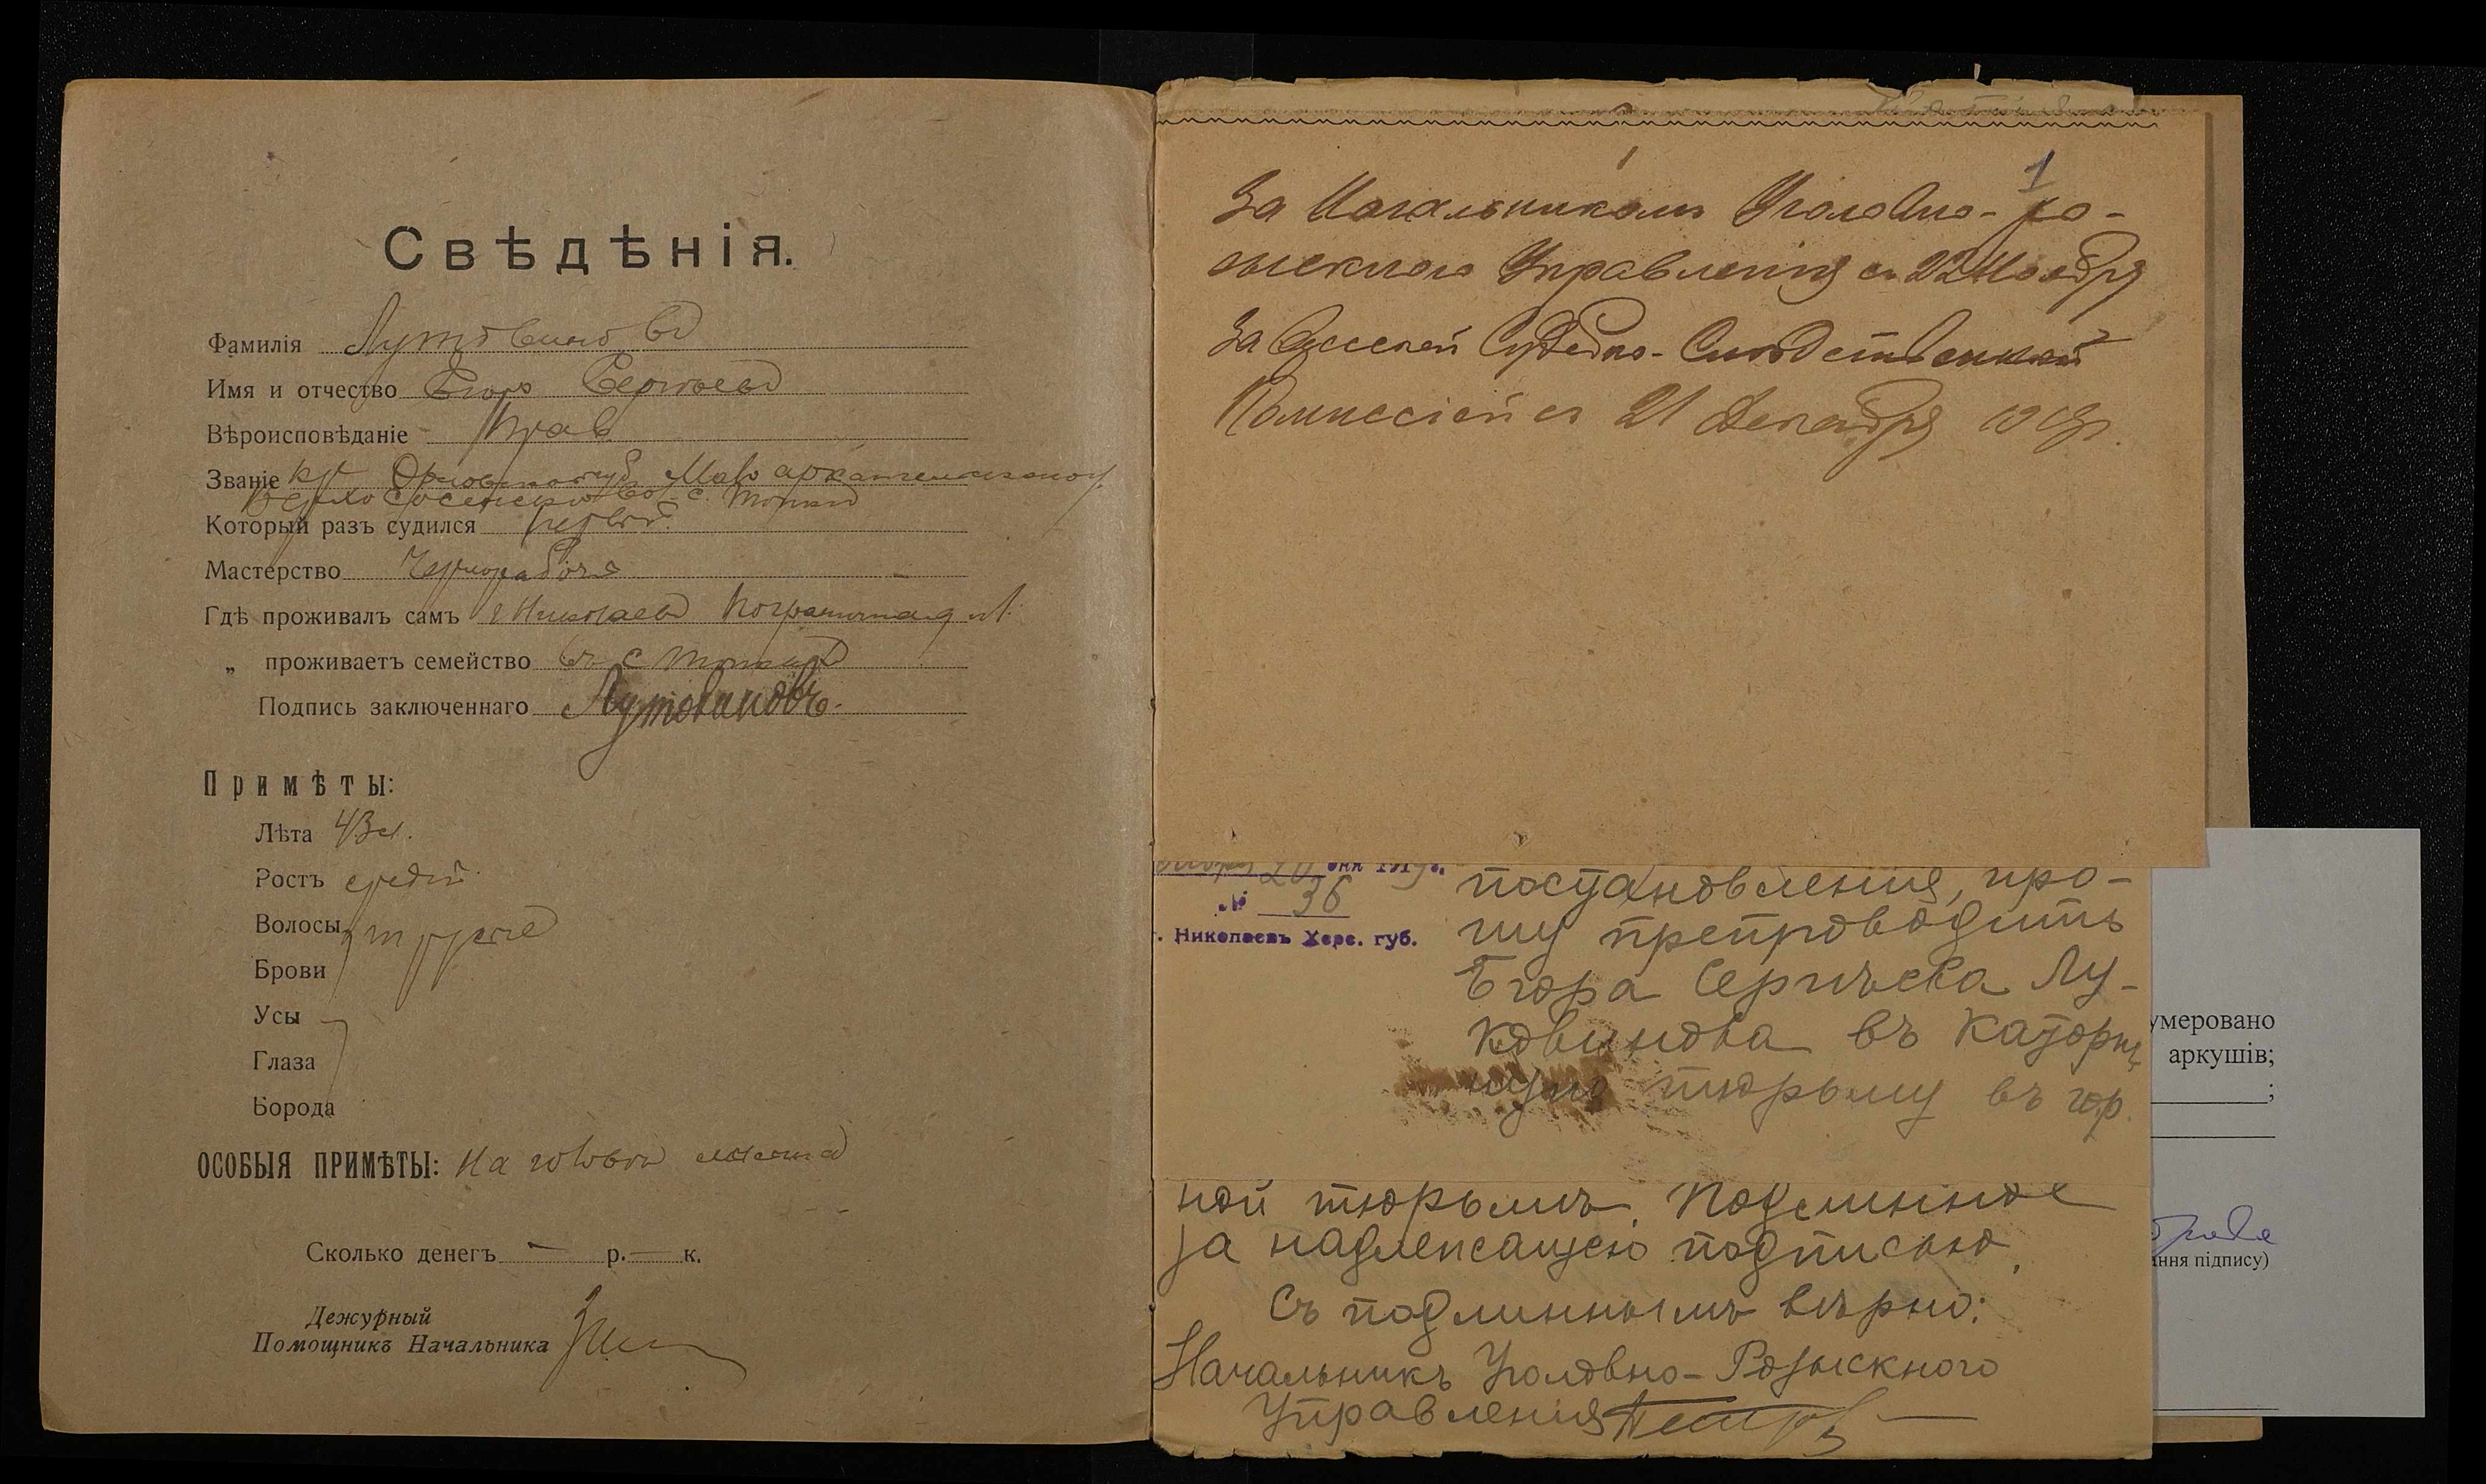 Свѣдѣнія.
Фамилія Лутовиновъ
Имя и отчество Егоръ Сергѣевъ
Вѣроисповѣданіе Прав
Званіе кр Орловской губ. Мало архангельскаго у.
Верхо Сосенской вол. с. Топки
Который разъ судился первый
Мастерство Чернорабочій
Гдѣ проживалъ самъ г Николаевъ Пограничная ул.
„ проживаетъ семейство въ с Топкахъ
Подпись заключеннаго Лутовиновъ.
Примѣты:
Лѣта 43 л.
Ростъ средній
Волосы
Брови
Усы
Глаза
Борода
ОСОБЫЯ ПРИМѢТЫ: На головѣ
Сколько денегъ — р. — к.
Дежурный
Помощникъ Начальника
1
За Начальникомъ Уголовно-ро-
зыскного Управленія съ 22 Ноября
За Одесской Судебно-Слѣдственной
Комиссіей съ 21 Декабря 1919 г.
№ 36
г. Николаевъ Херс. губ.
постановленія, про-
шу препроводить
Егора Сергѣева Лу-
ковинова въ Каторж
ную тюрьму въ гор.
ной тюрьмѣ. Подлинное
за надлежащею подписью.
Съ подлиннымъ вѣрно:
Начальникъ Уголовно-Розыскного
Управленія
умеровано
аркушів;
;
ння підпису)